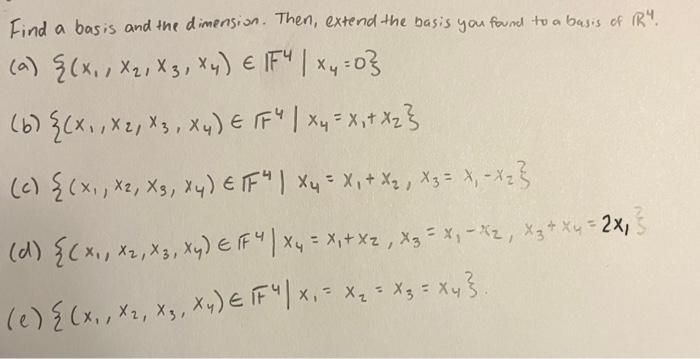 Find a basis and the dimension. Then, extend the basis you found to a basis of ℝ⁴.
(a) {(x₁, x₂, x₃, x₄) ∈ 𝔽⁴ | x₄ = 0}
(b) {(x₁, x₂, x₃, x₄) ∈ 𝔽⁴ | x₄ = x₁ + x₂}
(c) {(x₁, x₂, x₃, x₄) ∈ 𝔽⁴ | x₄ = x₁ + x₂, x₃ = x₁ - x₂}
(d) {(x₁, x₂, x₃, x₄) ∈ 𝔽⁴ | x₄ = x₁ + x₂, x₃ = x₁ - x₂, x₃ + x₄ = 2x₁}
(e) {(x₁, x₂, x₃, x₄) ∈ 𝔽⁴ | x₁ = x₂ = x₃ = x₄}.